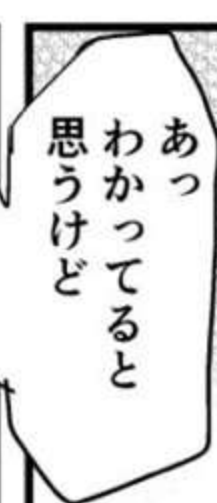 あっ
わかってると
思うけど